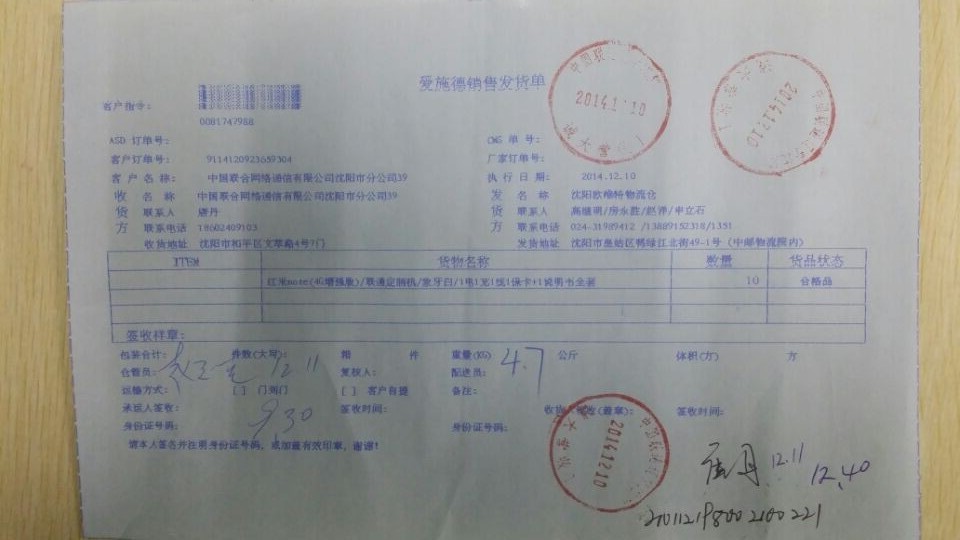 爱施德销售发货单
客户指令:
0081747988
ASD 订单号: CMS 单 号:
客户订单号: 9114120923659304 厂家订单号:
客 户 名 称: 中国联合网络通信有限公司沈阳市分公司39 执行日期: 2014.12.10
收 名 称 中国联合网络通信有限公司沈阳市分公司39 发 名 称 沈阳欧榜特物流仓
货 联系人 唐丹 货 联系人 高继明/房永胜/赵洋/申立石
方 联系电话 18602409103 方 联系电话 024-31989412 /13889152318/1351
收货地址 沈阳市和平区文萃路4号7门 发货地址 沈阳市皇姑区鸭绿江北街49-1号 (中邮物流院内)
ITEM 货物名称 数量 货品状态
红米note(4G增强版)/联通定制机/象牙白/1电1充1线1保卡+1说明书全套 10 合格品
签收样章:
包装合计: 件数(大写): 箱 件 重量(KG) 4.7 公斤 体积(方) 方
仓管员: 12.11 复核人: 配送员:
运输方式: [ ] 门到门 [ ] 客户自提 备注:
承运人签收: 9.30 签收时间: 收货 (盖章): 签收时间:
身份证号码: 身份证号码:
请本人签名并注明身份证号码，或加盖有效印章，谢谢!
唐丹 12.11 12.40
210112198002100221
2014.12.10
2014.12.10